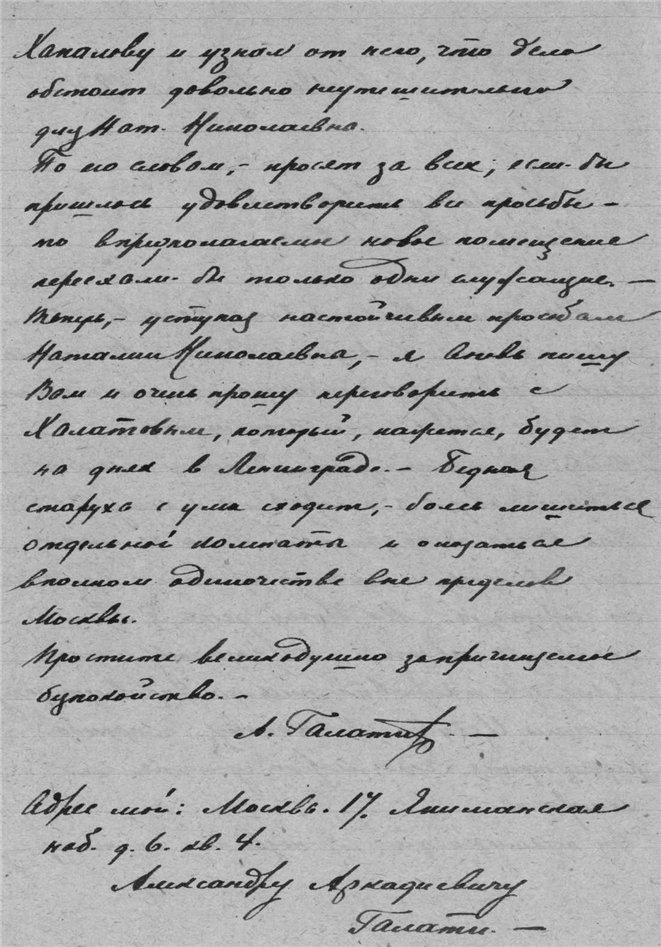 Хапалову и узнал от него, что дело
обстоит довольно неутешительно
для Нат. Николаевны.
По его словам, - просят за всех; если-бы
пришлось удовлетворить все просьбы -
то в предполагаемое новое помещение
переехали-бы только одни служащие. -
Теперь, - уступая настойчивым просьбам
Наталии Николаевны, - я вновь пишу
Вам и очень прошу переговорить с
Халатовым, который, кажется, будет
на днях в Ленинграде. - Бедная
старуха с ума сходит, - боясь лишиться
отдельной комнаты и оказаться
в полном одиночестве вне пределов
Москвы.
Простите великодушно за причиняемое
беспокойство. -
А. Галати -
Адрес мой: Москва. 17. Якиманская
наб. д. 6. кв. 4.
Александру Аркадиевичу
Галати. -